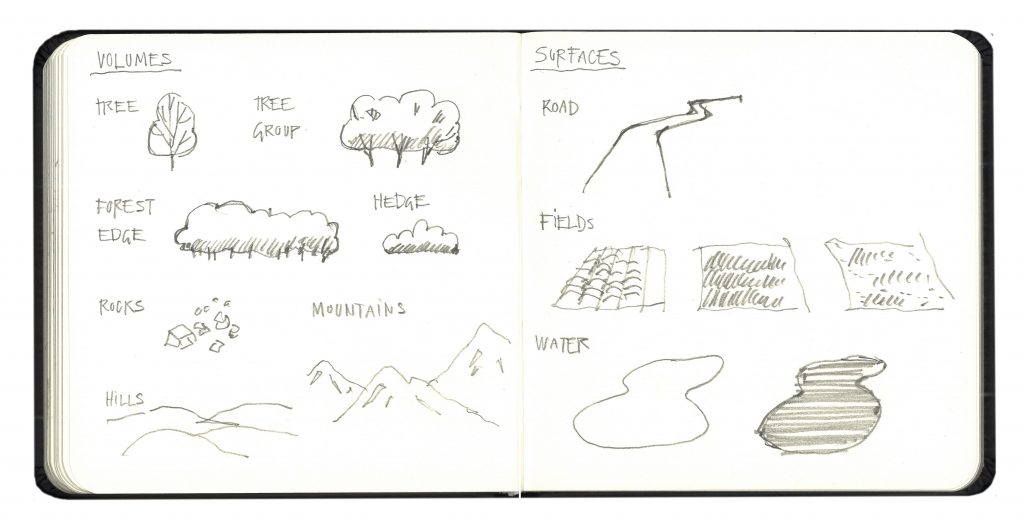 VOLUMES
TREE
TREE
GROUP
FOREST
EDGE
HEDGE
ROCKS
MOUNTAINS
HILLS
SURFACES
ROAD
FiELDS
WATER